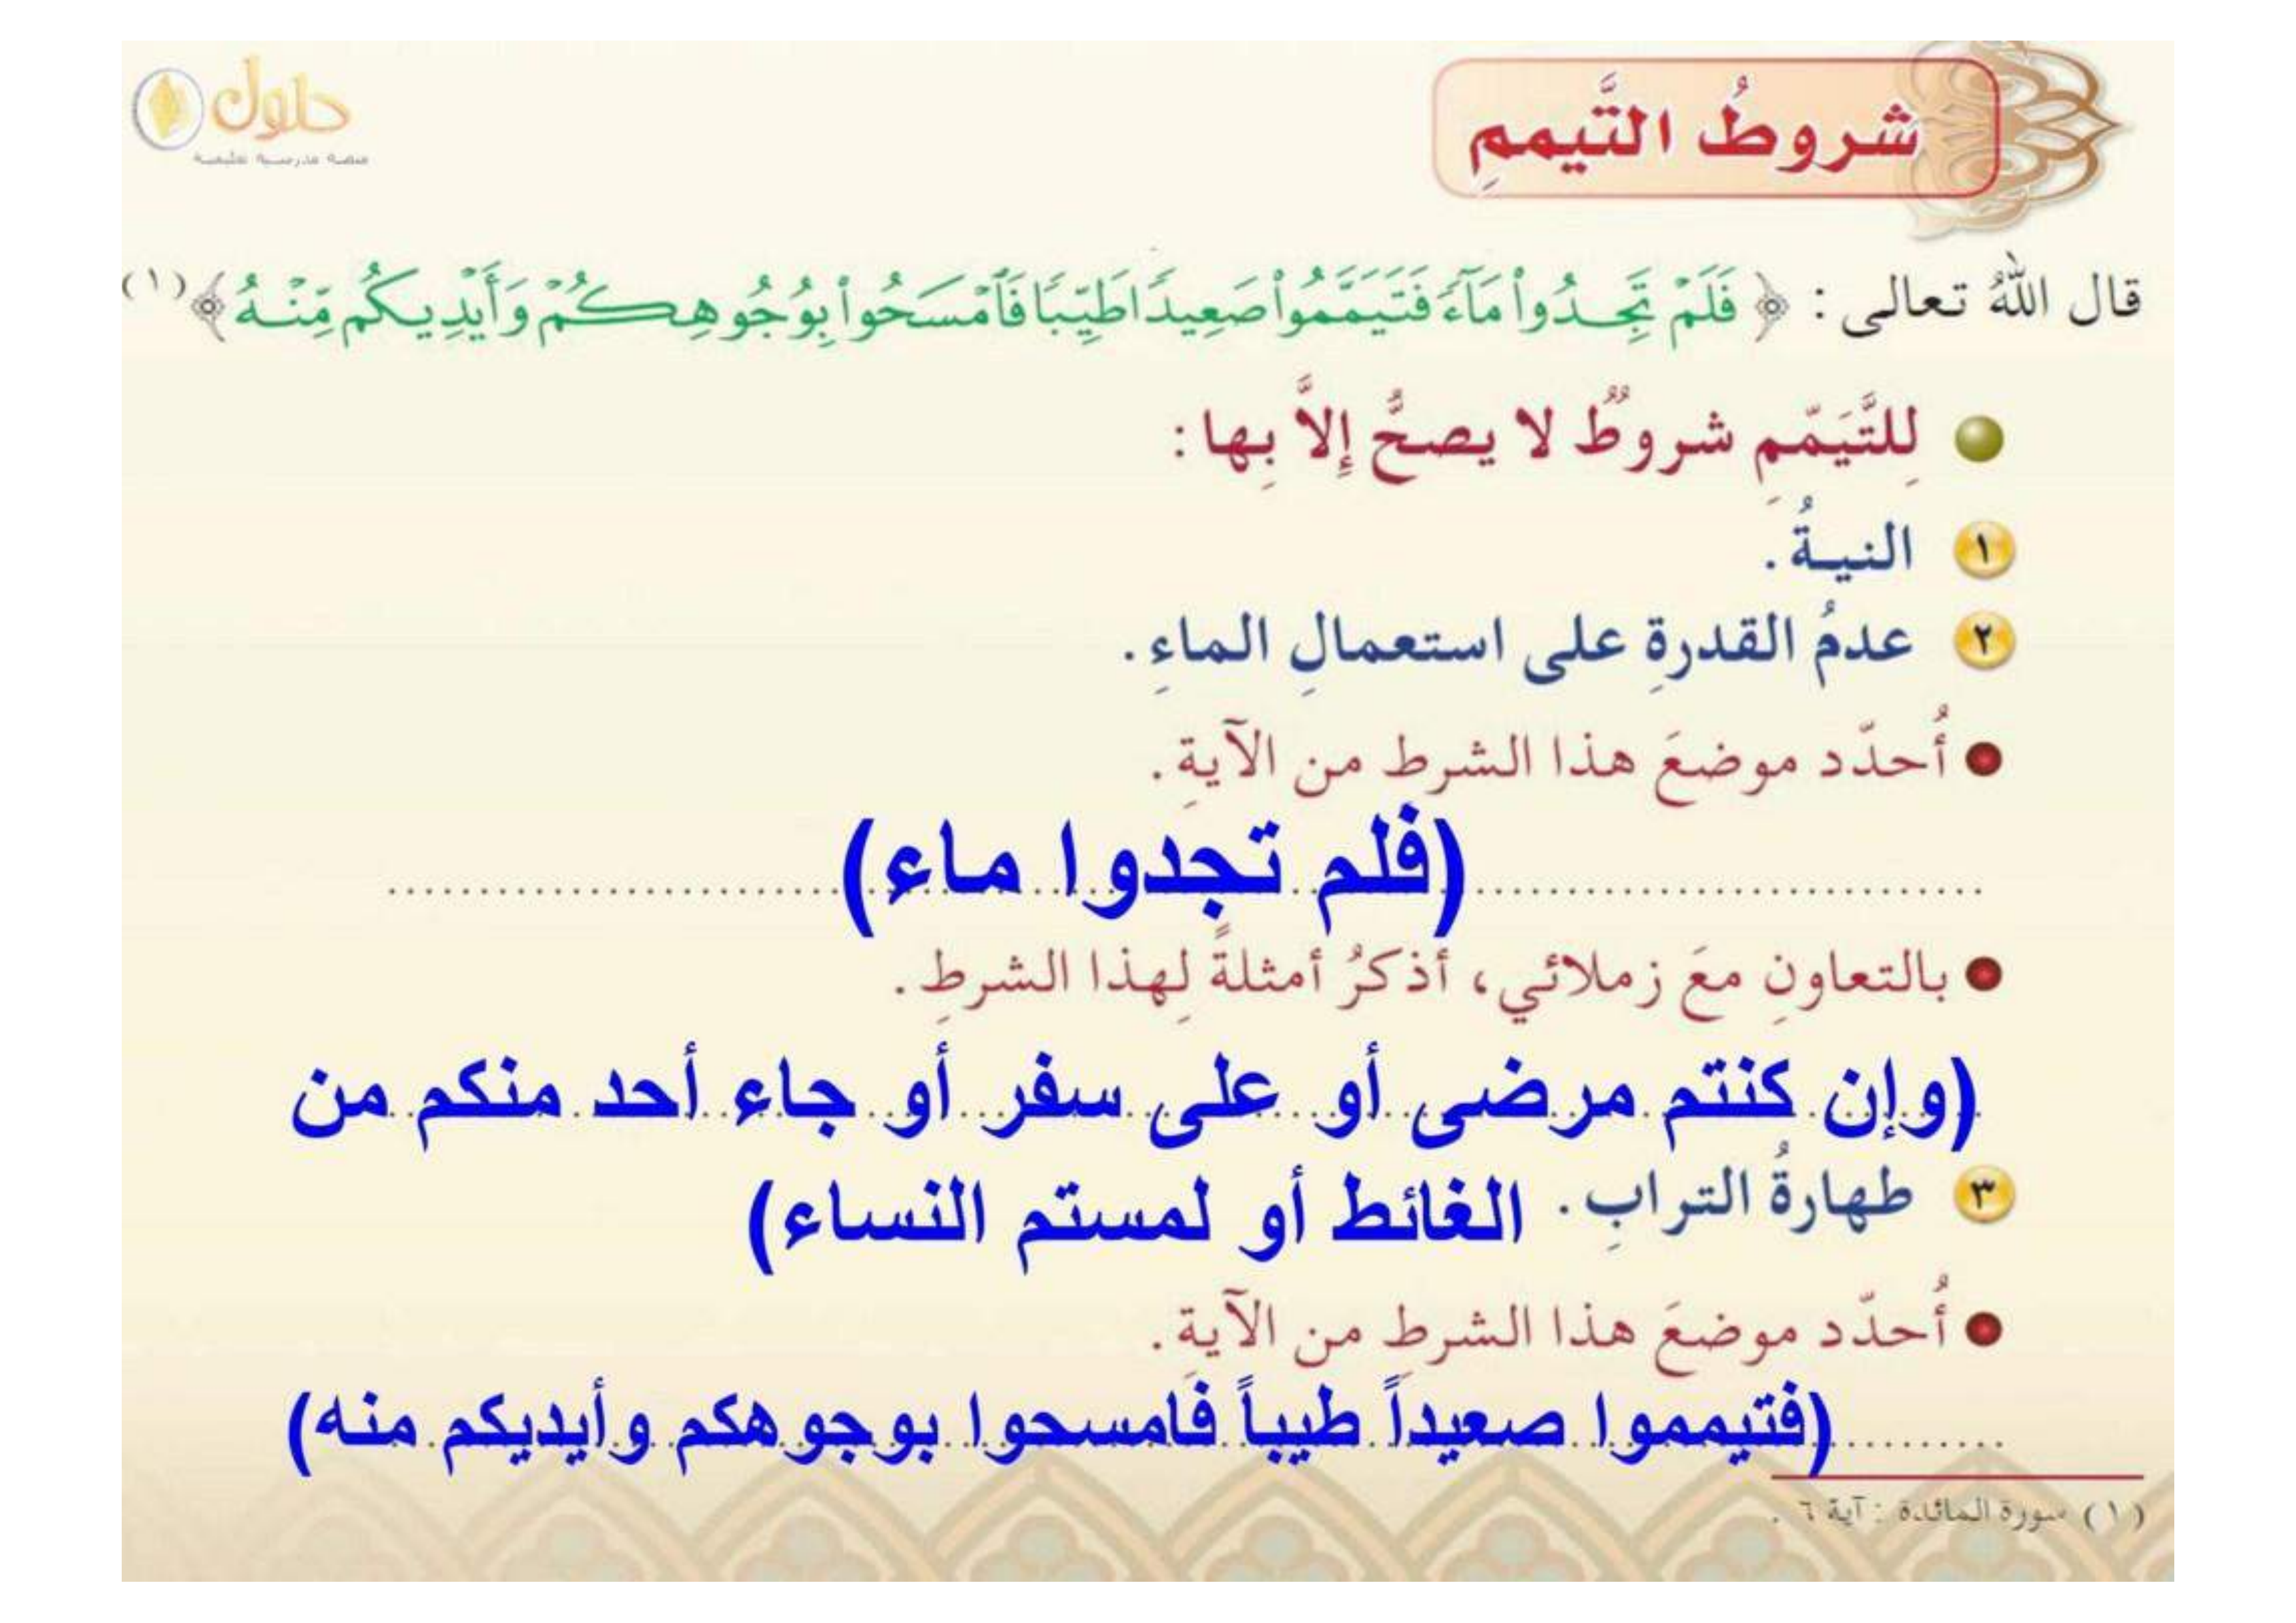 حلول
منصة مدرسية تعليمية
شروطُ التَّيممِ
قال اللهُ تعالى : ﴿ فَلَمْ تَجِدُوا۟ مَآءً فَتَيَمَّمُوا۟ صَعِيدًا طَيِّبًا فَٱمْسَحُوا۟ بِوُجُوهِكُمْ وَأَيْدِيكُم مِّنْهُ ﴾ (١)
لِلتَّيَمّمِ شروطٌ لا يصحُّ إِلاَّ بِها :
١ النيةُ .
٢ عدمُ القدرةِ على استعمالِ الماءِ .
● أُحدّد موضعَ هذا الشرط من الآيةِ .
(فلم تجدوا ماء)
● بالتعاونِ معَ زملائي، أذكرُ أمثلةً لِهذا الشرطِ .
(وإن كنتم مرضى أو على سفر أو جاء أحد منكم من
٣ طهارةُ الترابِ . الغائط أو لمستم النساء)
● أُحدّد موضعَ هذا الشرطِ من الآيةِ .
(فتيمموا صعيداً طيباً فامسحوا بوجوهكم وأيديكم منه)
(١) سورة المائدة : آية ٦ .